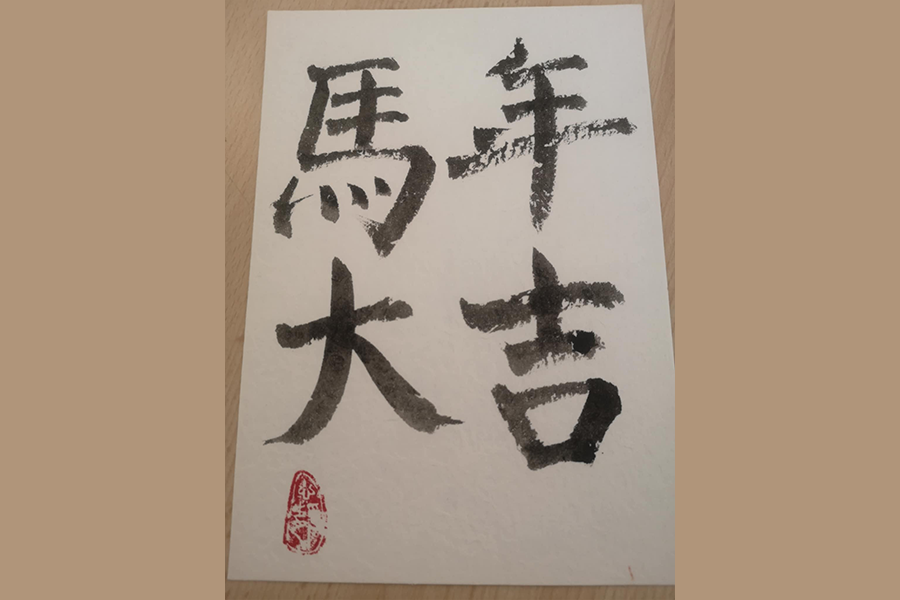 馬年
大吉